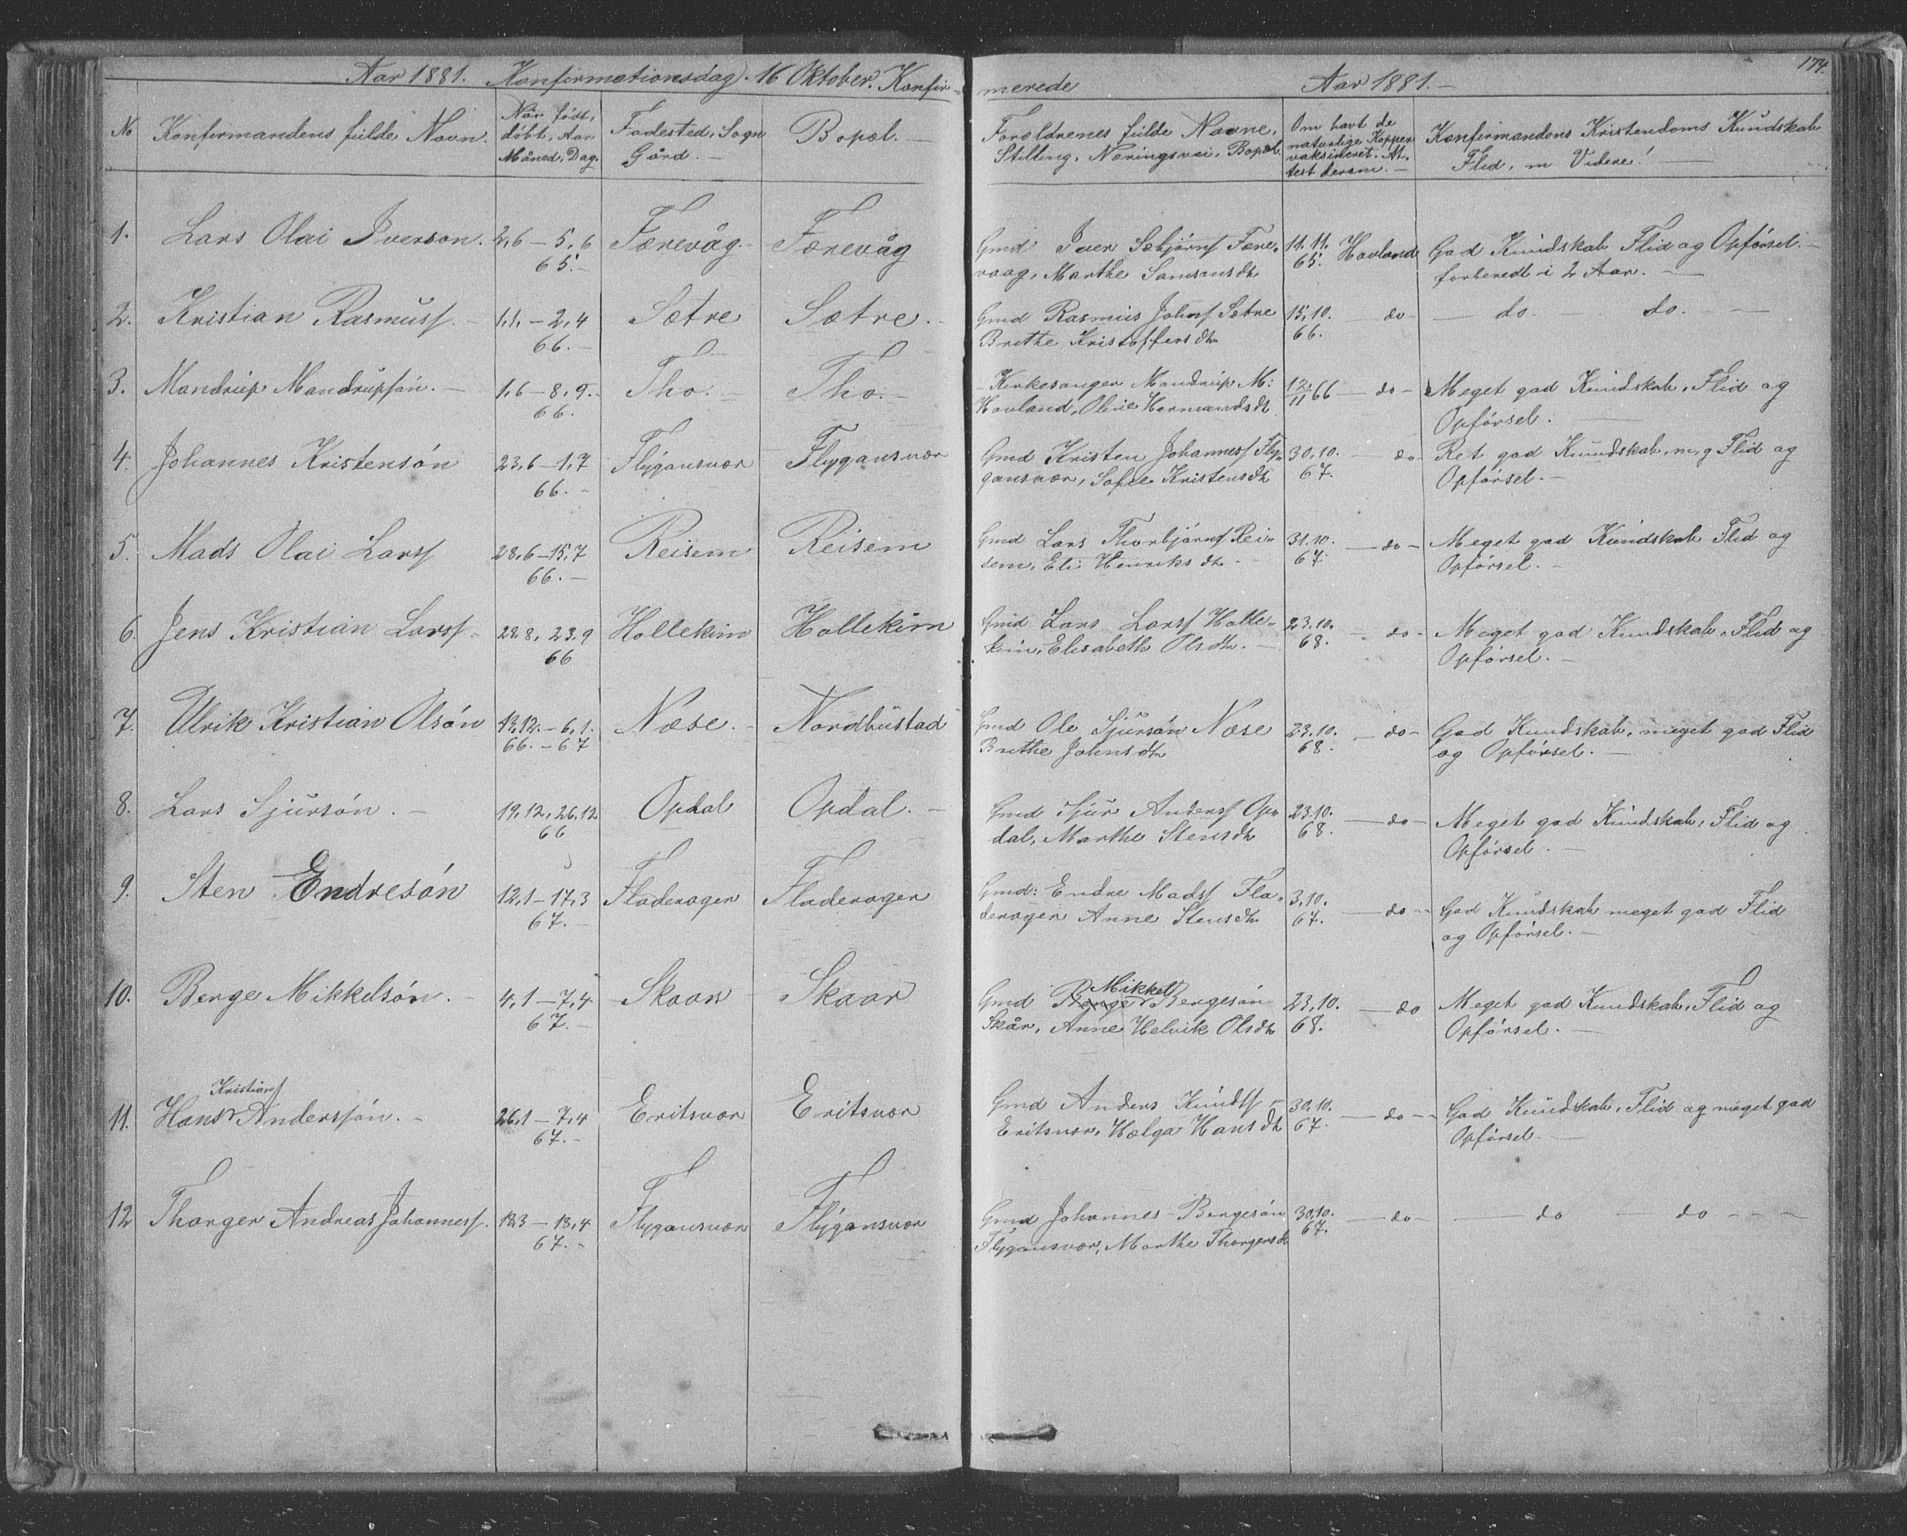 Aar 1881. Konfirmationsdag. 16 Oktober. Konfir-
merede Aar 1881.-
174.
No Konfirmandens fulde Navn.
Når født,
døbt, Aar
Måned, Dag.
Fødested, Sogn
Gård.-
Bopæl.-
Foroldrenes fulde Navne,
Stilling, Næringsvei, Bopæl
Om havt de
naturlige Kopper
vaksineret. At-
test derom.-
Konfirmandens Kristendoms Kundskab
Flid, m Videre!
1. Lars Olai Iverson. 2,6-5,6 Færevåg- Færevåg
65.-
Gmd Iver Sebjørns Fære-
vaag, Marthe Samsonsdtr
11.11. Havland
65.
God Kundskab Flid og Opførsel.-
forberedt i 2 Aar.-
2. Kristian Rasmuss. 1,1,-2,4 Sætre Sætre.-
66.-
Gmd Rasmus Johns Sætre
Brithe Kristoffersdtr
15,10. -do-
66.
-do.- do.--
3. Mandrup Mandrupsøn.- 1,6-8,9. Tho.- Tho.-
66.
-Kirkesanger Mandrup M:
Havland, Oline Hermandsdtr
12/11 66 -do-
Meget god Kundskab, Flid og
Opførsel.-
4. Johannes Kristensøn 23,6-1,7 Flygansvær Flygansvær
66.-
Gmd Kristen Johanness Fly-
gansvær, Sofie Kristensdtr
30,10. -do
67.
Ret god Kundskab, m, g Flid og
Opførsel.-
5. Mads Olai Larss 28,6-15,7 Reisem Reisem
66.-
Gmd Lars Thorbjørns Rei-
sem, Eli Henriksdtr.-
31.10. -do-
67.
Meget god Kundskab Flid og
Opførsel.-
6. Jens Kristian Larss- 28.8, 23,9 Hollekim Hollekim
66
Gmd Lars Larss Holle-
kim, Elisabeth Olsdtr.-
23.10. -do-
68.
Meget god Kundskab, Flid og
Opførsel.-
7. Ulrik Kristian Olsøn 12,12.-6,1. Næse.- Nordhustad
66.-67
Gmd Ole Sjursøn Næse
Brithe Johnsdtr
23.10. -do-
68.
God Kundskab, meget god Flid
og Opførsel.-
8. Lars Sjursøn.- 19,12, 26.12 Opdal Opdal.-
66
Gmd Sjur Anderss Op-
dal, Marthe Stensdtr
23.10. -do-
68.
Meget god Kundskab, Flid og
Opførsel.-
9. Sten Endresøn 12,1-17,3 Fladerager Fladerager
67.-
Gmd: Endre Madss Fla-
derager Anne Stensdtr
3,10. -do--
67.
God Kundskab meget god Flid
og Opførsel.-
10. Berge Mikkelsøn.- 4,1-7,4 Skaar Skaar
67.-
Mikkel
Gmd Berge Bergesøn
Skår, Anne Helvik Olsdtr
23,10. -do
68.
Meget god Kundskab, Flid og
Opførsel.-
Kristian
11. Hans Anderssøn.- 26,1-7,4 Eritsvær Eritsvær
67.-
Gmd Anders Knuds-
Eritsvær, Hælga Hansdtr
30,10. -do--
67.
God Kundskab, Flid og meget god
Opførsel.-
12 Thorger Andreas Johanness. 13,3-13,4 Flygansvær Flygansvær
67.-
Gmd Johannes Bergesøn
Flygansvær, Marthe Thorgersdtr
30,10. -do-
67.
-do -do---